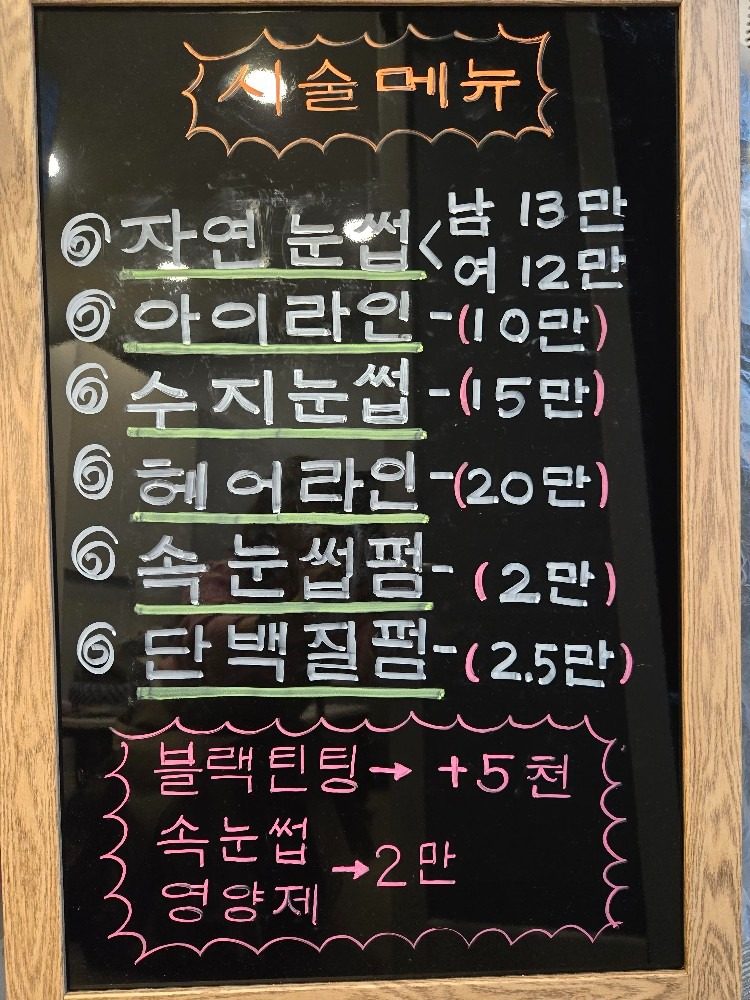 시술메뉴
자연 눈썹 < 남 13만
여 12만
아이라인 - (10만)
수지눈썹 - (15만)
헤어라인 - (20만)
속눈썹펌 - (2만)
단백질펌 - (2.5만)
블랙틴팅 → +5천
속눈썹
영양제 → 2만